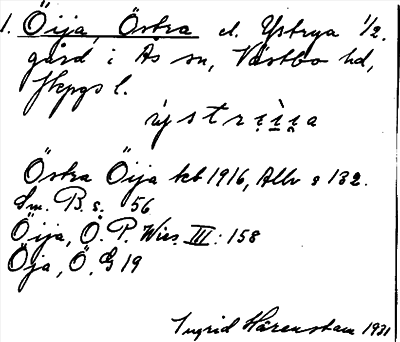 1. Öija, Östra el. Ystrya 1/2.
gård i Ås sn, Västbo hd,
Jkpgs l.
ýstrị̀ı̣a
Östra Öija kb 1916, Allv s 132.
Sm. B. s. 56
Öija, Ö. P. Wies. III: 158
Öja, Ö. G 19
Ingrid Härenstam 1931